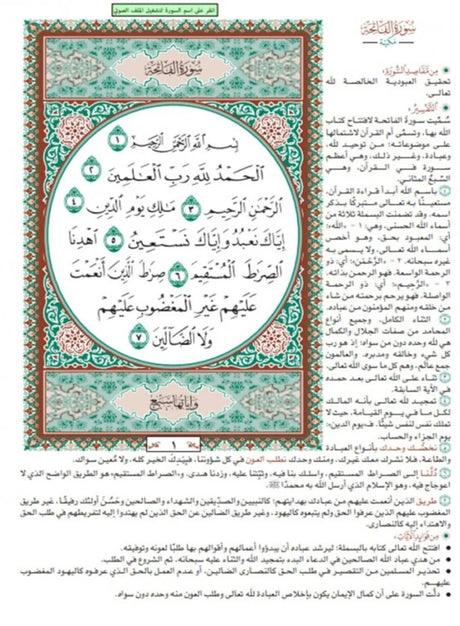 انقر على اسم السورة لتشغيل الملف الصوتي
سُورَةُ الفَاتِحَةِ
مَكيّة
سُورَةُ الفَاتِحَةِ
بِسْمِ اللَّهِ الرَّحْمَٰنِ الرَّحِيمِ ١
الْحَمْدُ لِلَّهِ رَبِّ الْعَالَمِينَ ٢
الرَّحْمَٰنِ الرَّحِيمِ ٣ مَالِكِ يَوْمِ الدِّينِ ٤
إِيَّاكَ نَعْبُدُ وَإِيَّاكَ نَسْتَعِينُ ٥ اهْدِنَا
الصِّرَاطَ الْمُسْتَقِيمَ ٦ صِرَاطَ الَّذِينَ أَنْعَمْتَ
عَلَيْهِمْ غَيْرِ الْمَغْضُوبِ عَلَيْهِمْ
وَلَا الضَّالِّينَ ٧
وآياتها سبع
١
من مقاصد السورة:
تحقيق العبودية الخالصة لله
تعالى.
التفسير:
سُمِّيت سورة الفاتحة لافتتاح كتاب
الله بها، وتسمى أم القرآن لاشتمالها
على موضوعاته؛ من توحيد لله،
وعبادة، وغير ذلك، وهي أعظم
سورة في القرآن، وهي
السبع المثاني.
١ باسم الله أبدأ قراءة القرآن،
مستعينًا به تعالى متبركًا بذكر
اسمه. وقد تضمنت البسملة ثلاثة من
أسماء الله الحسنى، وهي: ١- «الله»؛
أي: المعبود بحق، وهو أخص
أسماء الله تعالى، ولا يسمى به
غيره سبحانه. ٢- «الرَّحْمَن»؛ أي: ذو
الرحمة الواسعة. فهو الرحمن بذاته.
٣- «الرَّحِيم»؛ أي: ذو الرحمة
الواصلة. فهو يرحم برحمته من شاء
من خلقه ومنهم المؤمنون من عباده.
٢ الثناء الكامل، وجميع أنواع
المحامد من صفات الجلال والكمال
هي لله وحده دون من سواه؛ إذ هو رب
كل شيء وخالقه ومدبره. والعالمون
جمع عالَم، وهم كل ما سوى الله تعالى.
٣ ثناء على الله تعالى بعد حمده
في الآية السابقة.
٤ تمجيد لله تعالى بأنه المالك
لكل ما في يوم القيامة، حيث لا
تملك نفس لنفس شيئًا. فيوم الدين:
يوم الجزاء والحساب.
٥ نخصّك وحدك بأنواع العبادة
والطاعة، فلا نشرك معك غيرك، ومنك وحدك نطلب العون في كل شؤوننا، فبيدك الخير كله، ولا مُعين سواك.
٦ دُلَّنا إلى الصراط المستقيم، واسلك بنا فيه، وثبّتنا عليه، وزدنا هدى، و«الصراط المستقيم» هو الطريق الواضح الذي لا
اعوجاج فيه، وهو الإسلام الذي أرسل الله به محمدًا ﷺ.
٧ طريق الذين أنعمت عليهم من عبادك بهدايتهم؛ كالنبيين والصدّيقين والشهداء والصالحين وحَسُنَ أولئك رفيقًا، غير طريق
المغضوب عليهم الذين عرفوا الحق ولم يتبعوه كاليهود، وغير طريق الضالين عن الحق الذين لم يهتدوا إليه لتفريطهم في طلب الحق
والاهتداء إليه كالنصارى.
من فوائد الآيات:
• افتتح الله تعالى كتابه بالبسملة؛ ليرشد عباده أن يبدؤوا أعمالهم وأقوالهم بها طلبًا لعونه وتوفيقه.
• من هدي عباد الله الصالحين في الدعاء البدء بتمجيد الله والثناء عليه سبحانه، ثم الشروع في الطلب.
• تحذير المسلمين من التقصير في طلب الحق كالنصارى الضالين، أو عدم العمل بالحق الذي عرفوه كاليهود المغضوب
عليهم.
• دلَّت السورة على أن كمال الإيمان يكون بإخلاص العبادة لله تعالى وطلب العون منه وحده دون سواه.